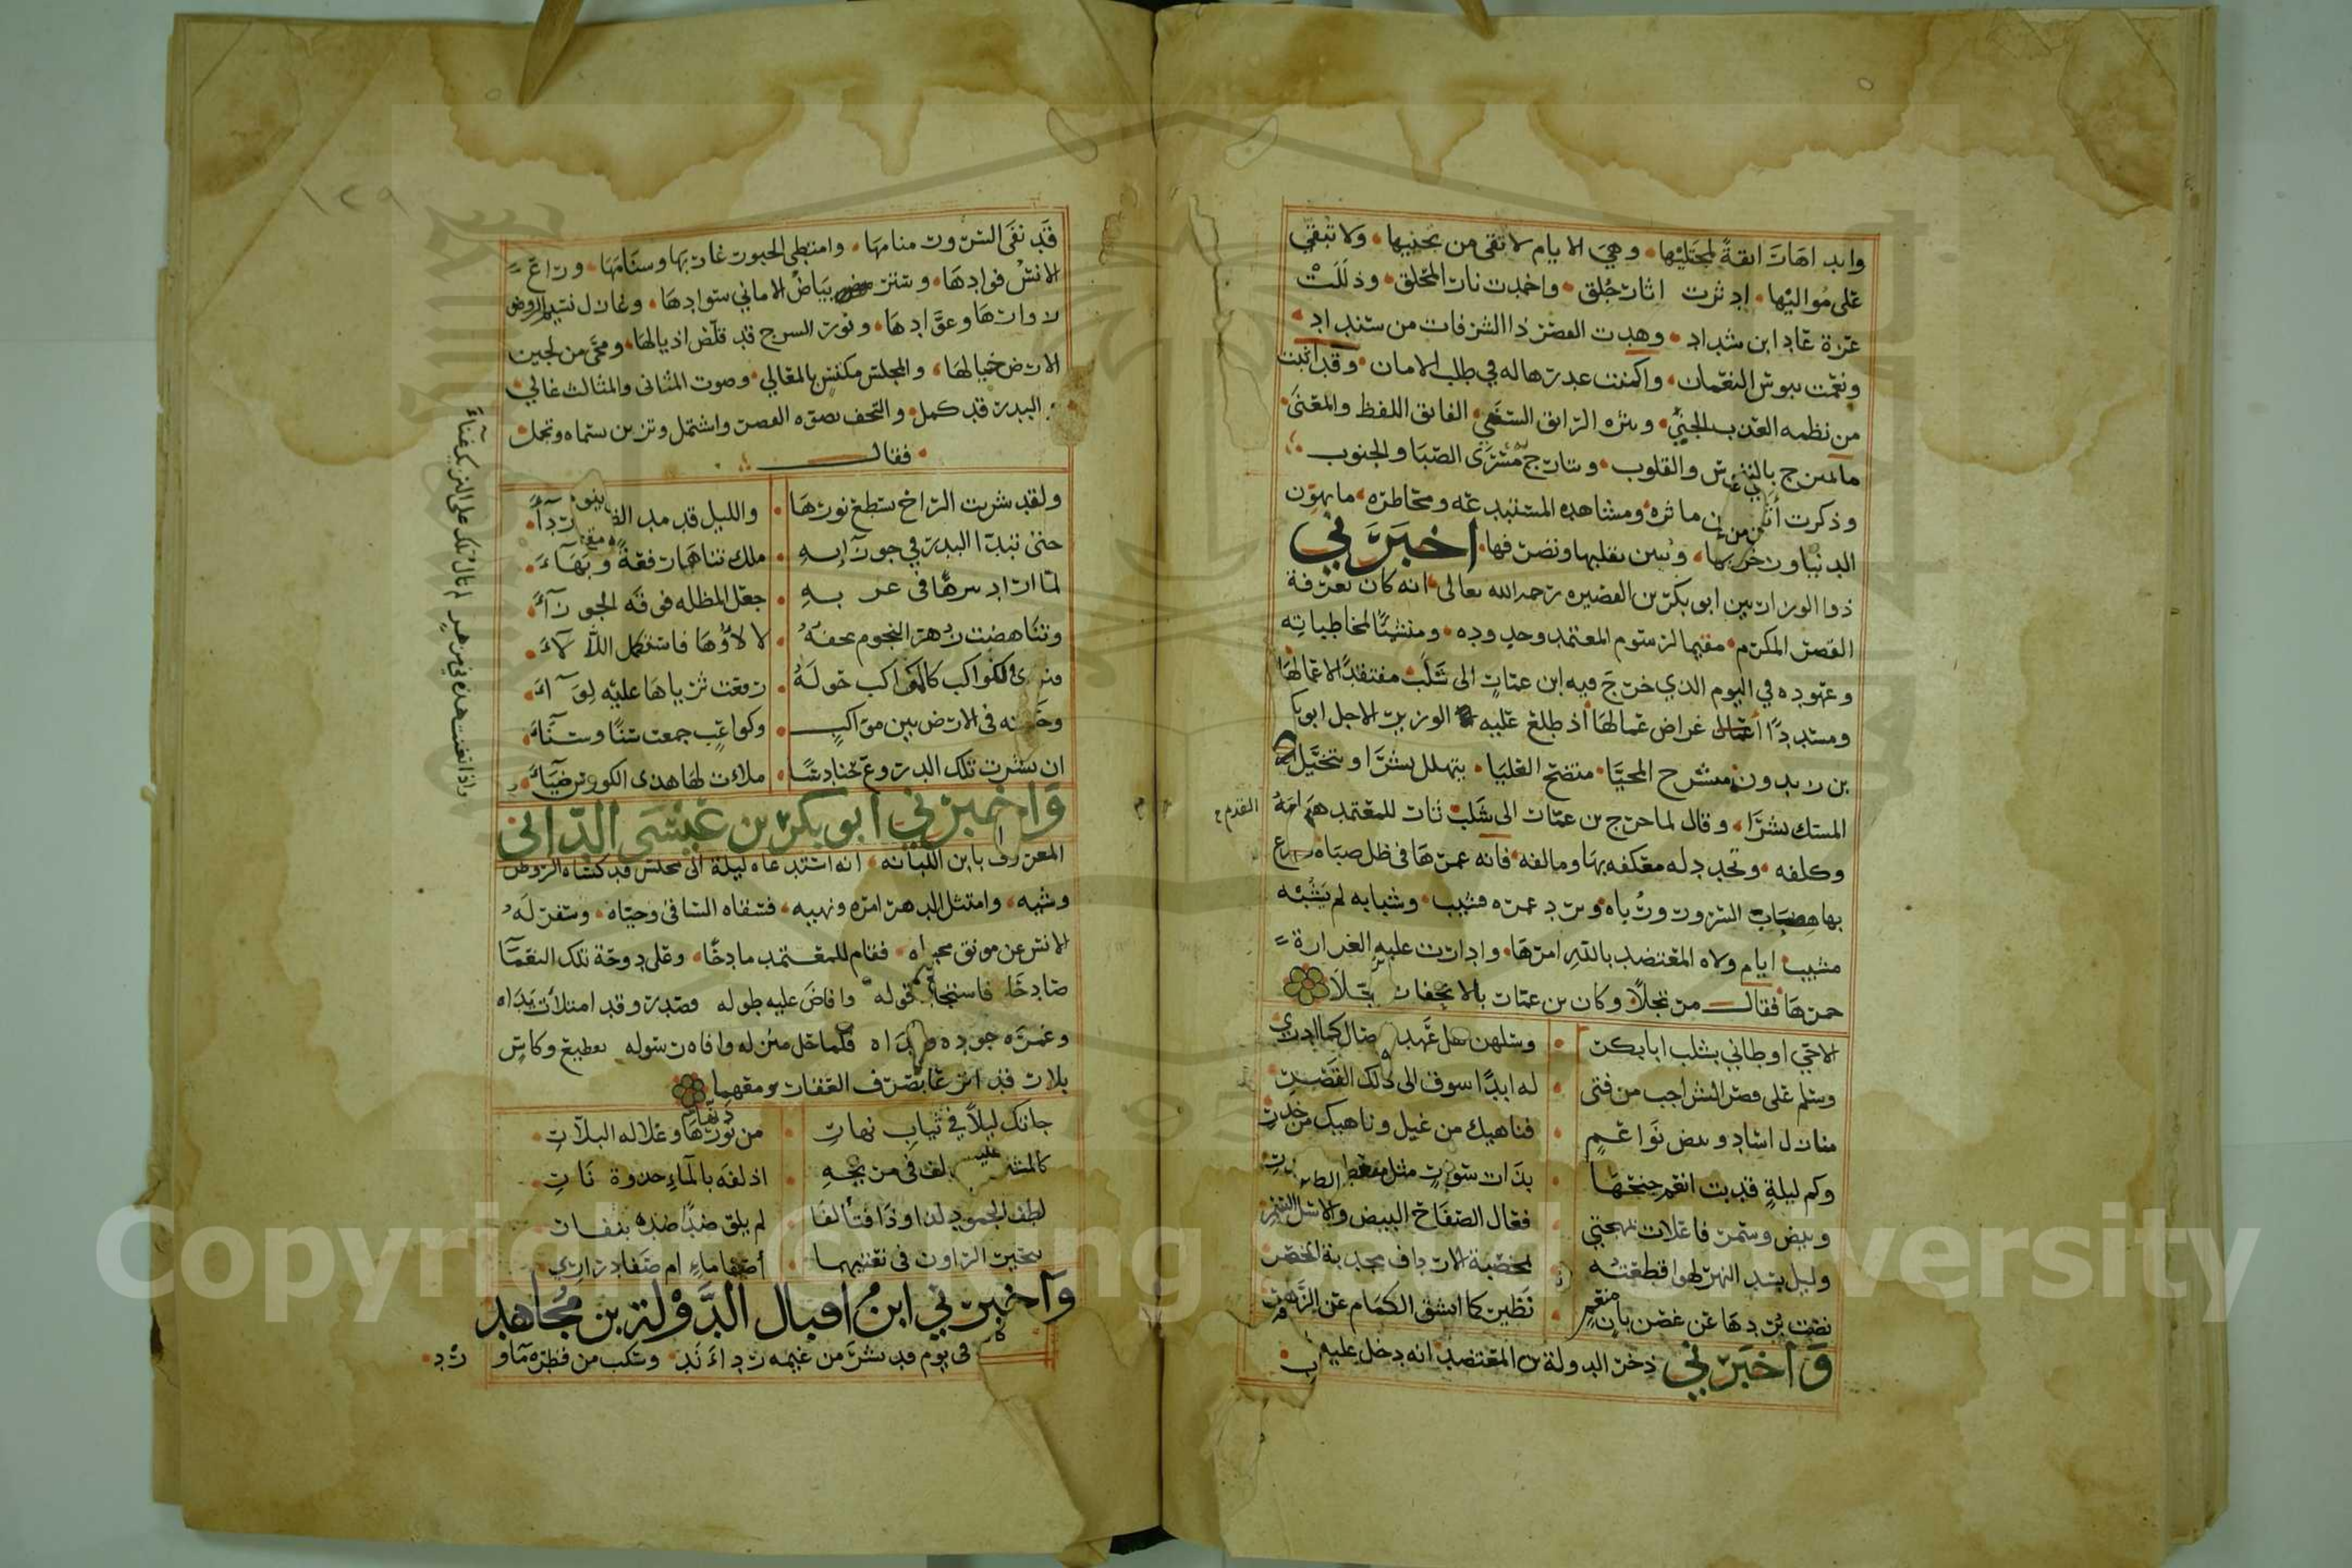 وابداها رائقة لمجتليها وهي الايام لا تقى من تجنيها ولا تبقي
على مواليها اد ثرت اثار جلق واخمدت نار المحلق وذللت
عزة عاد ابن شداد وهدت القصر ذا الشرفات من سنداد
ونعت ببوس النعمان واكمنت غدرها له في طلب الامان وقد اثبت
من نظمه العذب الجني ونثره الرائق السني الفائق اللفظ والمعنى
ما يمتزج بالنفوس والقلوب وتتارج مسرى الصبا والجنوب
وذكرت ماثره ومشاهده المستبد عه ومخاطره ما يهون
الدنيا وزخرفها ويبين تقلبها وتصرفها اخبرني
ذوا الوزارتين ابو بكر بن القصيره رحمه الله تعالى انه كان بعرفة
القصر المكرم مقيما لرسوم المعتمد وحدوده ومنشئا لمخاطباته
وعهوده في اليوم الذي خرج فيه ابن عمار الى شلب مفتقدا لاعمالها
ومسددا اغراض عمالها اذ طلع عليه الوزير الاجل ابو بكر
بن زيدون منشرح المحيا متضح العليا يتهلل بشرا ويتخيل
المسك نشرا وقال لما خرج بن عمار الى شلب ثار للمعتمد هيامه
القدم
وكلفه وتجدد له معكفه بها ومالفه فانه عمرها في ظل صباه
بها هضاب السرور ورباه وبرد عمره قشيب وشبابه لم يشبه
مشيب ايام ولاه المعتضد بالله امرها وادارت عليه الغرارة
خمرها فقال مرتجلا وكان بن عمار بالانجفار
الاحي اوطاني بشلب ابا بكر وسلهن هل عهد الوصال كما ادري
وسلم على قصر الشراجب من فتى له ابدا شوق الى ذلك القصر
منازل اساد وبيض نواعم فناهيك من غيل وناهيك من خدر
وكم ليلة قد بت انعم جنحها بذات سوار مثل منعطف
وبيض وسمر فاعلات بمهجتي فعال الصفاح البيض والاسل السمر
وليل بسد النهر لهوا قطعته لمخضبة الارداف مجدبة الخصر
نضت بردها عن غصن بان منعم نظير كما انشق الكمام عن الزهر
واخبرني ذخر الدولة بن المعتضد انه دخل عليه
١٢٩
قد نفى السرور منامها وامتطى الحبور غاربها وسنامها وراع
الانس فوادها وستر بياض الاماني سوادها وغازل نسيم الروض
زوارها وعوادها ونور السرج قد قلص اذيالها ومحى من لجين
الارض خيالها والمجلس مكتس بالمعالي وصوت المثاني والمثالث عالي
والبدر قد كمل والتحف بضوءه القصر واشتمل وتزين بسناه وتجمل
فقال
ولقد شربت الراح يسطع نورها والليل قد مد الظلام رداء
حتى تبدا البدر في جوزائه ملك تناهى رفعة وبهاء
لما اراد تنزها في غربه جعل المظلة فوقه الجوزاء
وتناهضت زهر النجوم يحفه لالاؤها فاستكمل اللالاء
وترى الكواكب كالمواكب حوله رفعت ثرياها عليه لواء
وحكيته في الارض بين مواكب وكواعب جمعت سنا وسناء
ان نشرت تلك الدروع حنادسا ملات لها هذي الكووس ضياء
واذا تغنت هذه في مزهر لم تال تلك على التريك غناء
واخبرني ابو بكر بن عيسى الداني
المعروف بابن اللبانه انه استدعاه ليلة الى مجلس قد كساه الروض
وشيه وامتثل الدهر امره ونهيه فسقاه الساقي وحياه وسفر له
الانس عن مونق محياه فقام للمعتمد مادحا وعلى دوحة تلك النعما
صادحا فاستجاد قوله وافاض عليه طوله وصدر وقد امتلات يداه
وغمره جوده ونداه فلما حل منزله وافاه رسوله بقطيع وكاس
بلار قد اترعا بصرف العقار ومعهما
جاتك ليلا في ثياب نهار من نورها وغلاله البلار
كالمشتري لف في مريخه اذ لفه بالماء جذوة نار
لطف الجمود لذا وذا فتالفا لم يلق ضدا ضده بنفار
يتحير الراون في نعتيهما اصفا ماء ام صفا دراري
واخبرني ابن اقبال الدولة بن مجاهد
في يوم قد نشر من غيمه رداء ند وسكب من قطره ماء ورد
Copyright © King Saud University